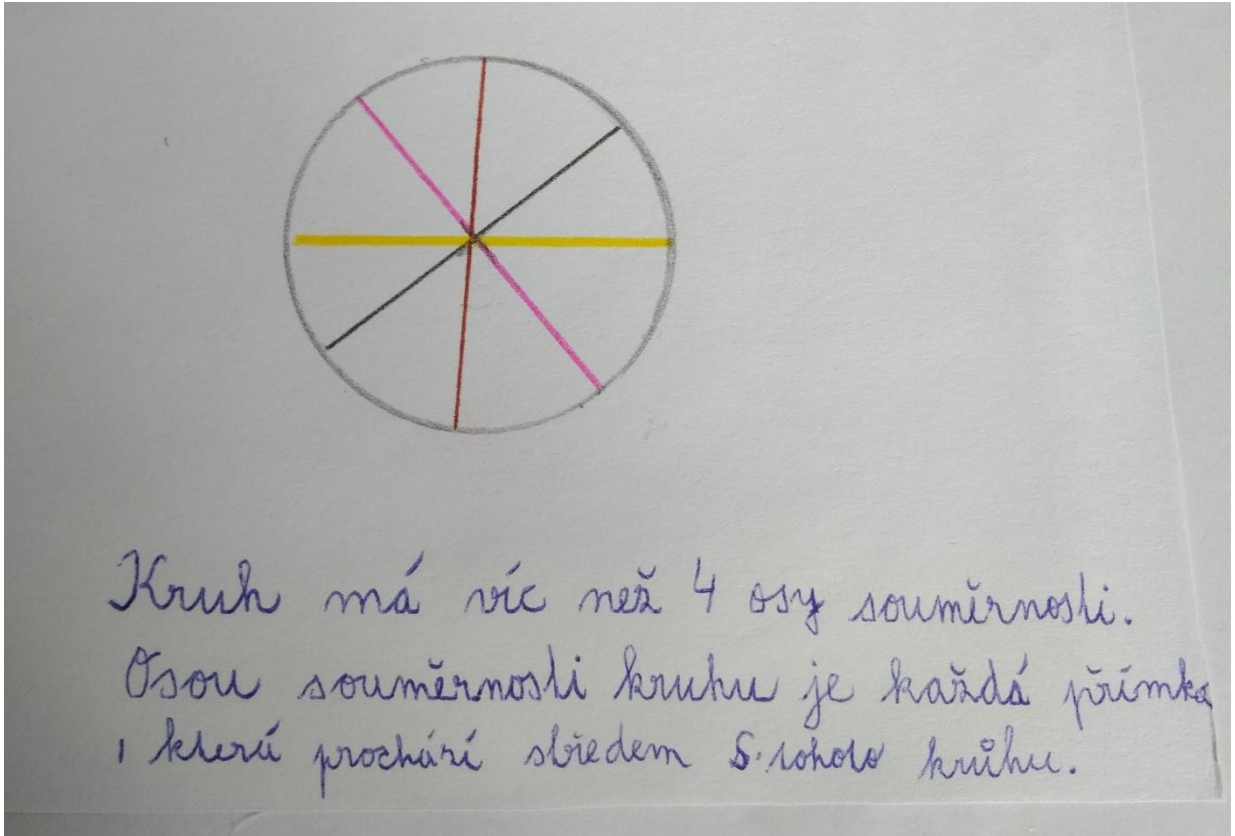 Kruh má víc než 4 osy souměrnosti.
Osou souměrnosti kruhu je každá přímka
, která prochází středem S tohoto krůhu.